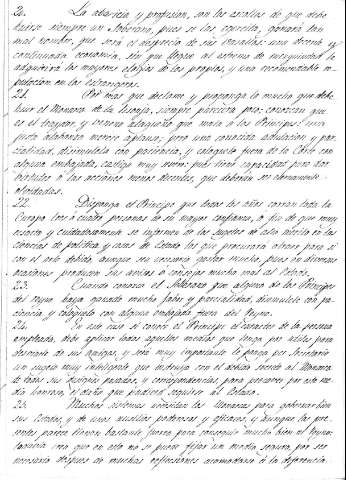 20. La avaricia y profusion, son los escollos de que debe
huirse siempre un Soberano, pues se las egecuta, ganará tan
mal nombre, que será el desprecio de sus vasallos: una decente y
continuada economia, sin que llegue al extremo de mezquindad le
adquirirá los mayores elogios de los propios, y una recomendable re-
putacion en los Extrangeros.
21. Por mas que declame y proponga lo mucho que debe
huir el Monarca de la lisonja, siempre pareciera poco: conozcan que
es el traydor, y veneno alagüeño que mata á los Principes: una
justa alabanza merece aplauso; pero una conocida adulacion y par-
cialidad, disimulela con paciencia, y coloquelo fuera de la Corte con
alguna embajada, castigo muy
virtudes á las acciones menos decentes, que deberán ser eternamente
olvidadas.
22. Disponga el Principe que todos los años corran toda la
Europa tres ó cuatro personas de su mayor confianza, á fin de que muy
exacta y cuidadosamente se informen de los sugetos de alto merito en las
ciencias de politica y cosas de Estado los que procurará atraer para sí
con el arte debido, aunque sea necesario gastar mucho, pues en diversas
ocasiones producen sus avisos ó consejos mucho mal al Estado.
23. Cuando conozca el Soberano que alguno de los Principes
del reyno haya ganado mucho favor y parcialidad, disimulele con pa-
ciencia, y coloquelo con alguna embajada fuera del Reyno.
24. En este caso si conoce el Principe el caracter de la persona
empleada, debe aplicar todos aquellos medios que tenga por utiles para
desviarle de sus amigos, y será muy importante le ponga por Secretario
un sugeto muy inteligente que instruya con el debido secreto al Monarca
de todos sus designios pasados, y correspondencias, para precaver por este me-
dio honroso, el daño que pudiera seguirse al Estado.
25. Muchos sistemas consideran los Monarcas para gobernar bien
sus Estados, y de unos auxilios poderosos y eficaces, y aunque los pre-
sentes parece tienen bastante fuerza para conseguir mucho bien al Reyno:
todavia creo que en esto no se puede fijar un medio seguro, por ser
necesario despues de muchas reflexiones acomodarse á la diferencia